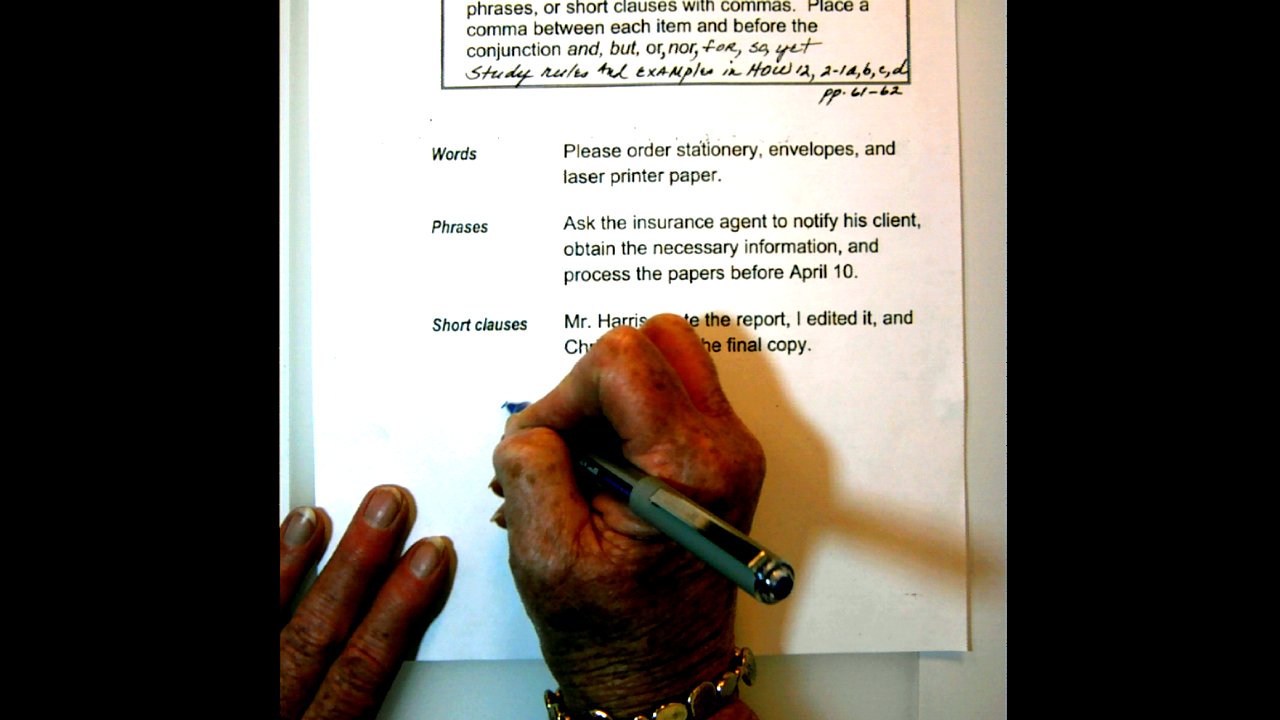 phrases, or short clauses with commas. Place a
comma between each item and before the
conjunction and, but, or, nor, for, so, yet
Study rules and examples in HOW 12, 2-1a,b,c,d
pp. 61-62
Words
Please order stationery, envelopes, and
laser printer paper.
Phrases
Ask the insurance agent to notify his client,
obtain the necessary information, and
process the papers before April 10.
Short clauses
Mr. Harris the report, I edited it, and
final copy.